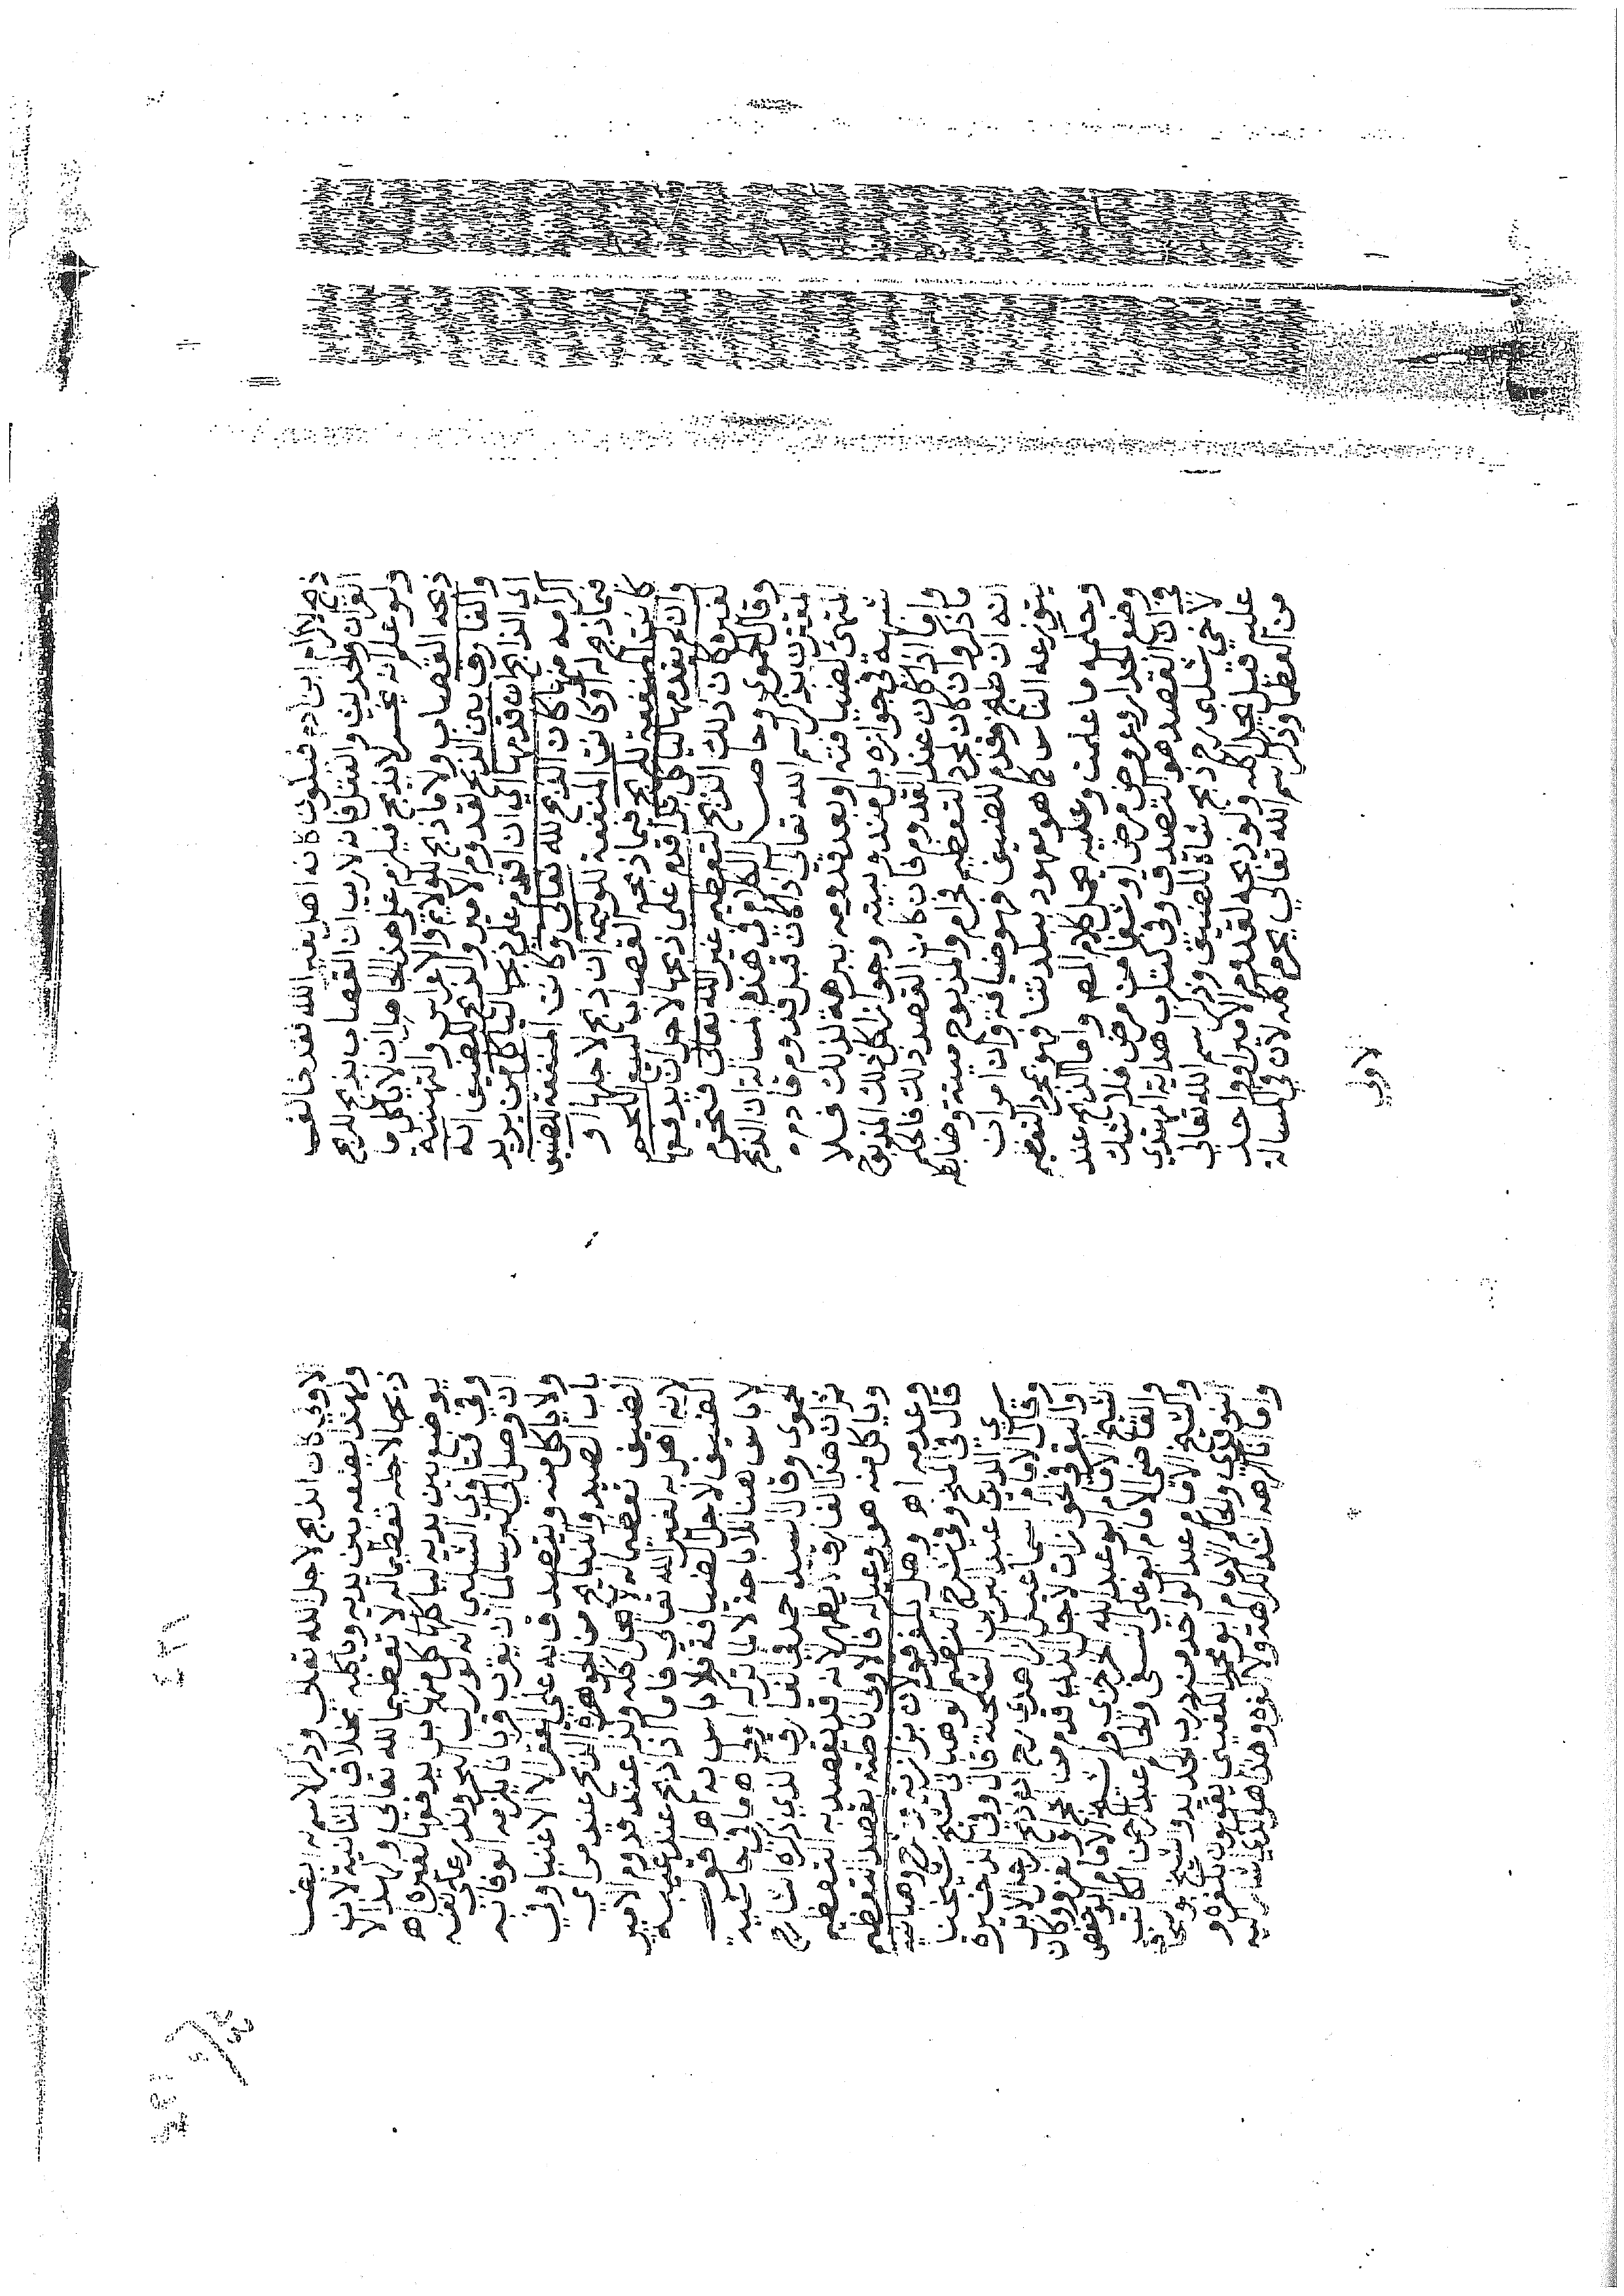 ذبح لاكرام ابن ادم فيكون كانه اهل به لغير الله فقد خالف
القران والحديث والعقل فانه لا ريب ان القصاب يذبح للربح
ولو علم انه يخسر لا يذبح فيلزم على هذا الجاهل ان لا ياكل ما
ذبحه القصاب ولا ما ذبح للولايم والاعراس والتهنئة
والفارق بين الذبح لقدوم الامير والذبح للضيف انه
اي الذابح ان قدمها اي ان اقدم على ذبحها لياكل من يريد
اكرامه منها كان الذبح لله تعالى وكانت المنفعة للضيف
فيما ذبح له او كانت المنفعة للوليمة ان ذبح لاجلها او
كانت المنفعة للربح فيما ذبحه القصاب لبيع اللحم
وان لم يقدمها لياكل بل اقدم على ذبحها لاجل ان يدفعها
لغيره كان ذلك الذبح لتعظيم غير الله تعالى فتحرم
وقال الحموي وحاصل الكلام في هذه المسالة ان الذبح
المقترن بذكر اسم الله تعالى اذا كان قبل قدوم قادم
المتهيئ لضيافته او بعد قدومه ببرهة لذلك فلا
شبهة في جوازه بل مندوبيته وجواز اكل ذلك المذبوح
واما اذا كان عند القدوم فان كان القصد ذلك فالحكم
ما ذكر وان كان لمجرد التعظيم فحرام والمذبوح ميتة وضابطه
انه ان طبخ وقدم للضيف فهو ضيافة وان امر ان
يتوزعه الناس كما هو معهود ببلدتنا فهو لمجرد التعظيم
وحكمه ما علمت وعليه يحمل كلام المصنف واما الذبح عند
وضع الجدار وعروض مرض او شفا من مرض فلا شك
في ان القصد هو التصدق وفي كتاب هداية المهتدي
لاخي شلبي رجل ذبح شاة للضيف وذكر اسم الله تعالى
عليه قيل يحل اكله ولو ذبحه لقدوم الامير او واحد
من العظما وذكر اسم الله تعالى يحرم اكله لان في المسالة
لاولى
٤٣١
الاولى كان الذبح لاجل الله تعالى وذكر لاسمه
ولهذا يضعه بين يديه وياكله بخلاف الثانية لان
ذبحها لاجله تعظيما له لا تعظيما لله تعالى ولهذا لا
يوضع بين يديه لياكلها كل منها بل يدفعها لغيره اهـ
وفي فتاوى الشلبي انه لو ركب البحر ونذر على نفسه
ان وصل الى البر سالما ان يقرب قربانا يلزمه الوفا به
ولا ياكل منه ويتصدق به على الفقرا لا الاغنيا وفي
باب الصيد والذبايح من الجوهرة الذبح عند مراي
الضيف تعظيما له لا يحل اكله وكذا عند قدوم الامير
لانه اهل به لغير الله تعالى فاما اذا ذبح عند غيبة
الضيف لاجل الضيافة فلا باس به اهـ اقول
لا باس هنا للاباحة لا لما تركه اولى اهـ ما في حاشية
الحموي وقال السيد احمد وفي الفارق الذي ذكره الشارح
ثم ان هذا الفارق لا يظهر لانه قد يقصد به التعظيم
وياكل منه هو وعياله فالاولى اناطته بقصد التعظيم
وعدمه اهـ وهل يكفر قولان بزازية وشرح وهبانية
قال في المنح وفي شرح النظم الوهباني لشيخ شيخنا
سري الدين عبد البر بن الشحنة قال وفي الذخيرة
وقال الامام اسماعيل الزاهدي رح اذا ذبح البقر والابل
او البقر في الجوازات لاجل الذين قدموا من الحج او الغزو كان
الشيخ الامام ابو عبد الله الخيزاخزي والشيخ الامام ابو حفص
والقاضي الامام ابو علي النسفي والحاكم عبد الرحمن الكاتب
والشيخ الامام عبد الواحد من درب الحديد والشيخ ابو اسحاق
النوقدي والحاكم الامام ابو محمد الكفيني يقولون بكفره و
واما انا اكرهه اشد الكراهة ولا اكفره وهذا هو الذي اشار اليه